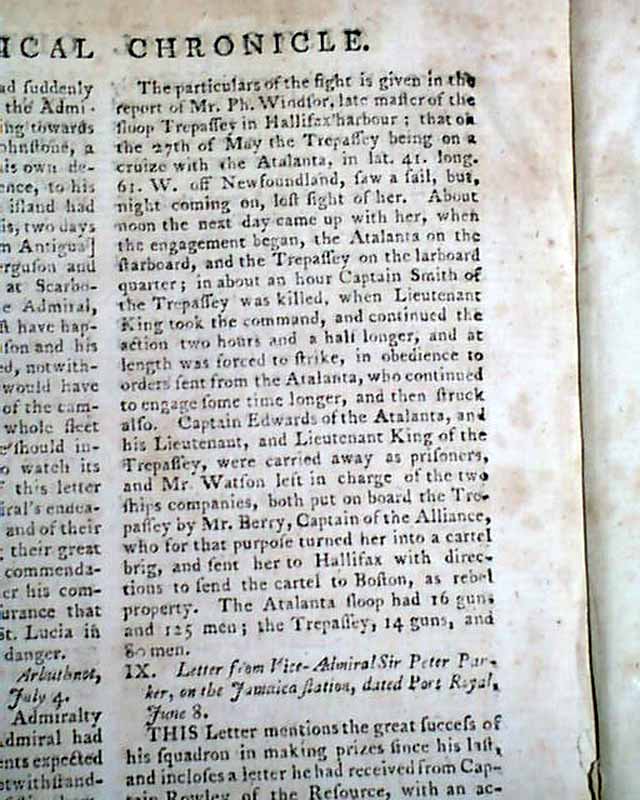 ICAL CHRONICLE.
ad suddenly
the Admi-
ing towards
ohnſtone, a
his own de-
ence, to his
iſland had
is, two days
m Antigua]
erguſon and
at Scarbo-
e Admiral,
ſt have hap-
ſon and his
ed, notwith-
would have
of the cam-
whole fleet
e ſhould in-
o watch its
f this letter
iral's endea-
and of their
; their great
commenda-
er his com-
urance that
St. Lucia in
danger.
Arbuthnot,
July 4.
Admiralty
Admiral had
ents expected
otwithſtand-
The particulars of the fight is given in the
report of Mr. Ph. Windſor, late maſter of the
ſloop Trepaſſey in Hallifax harbour; that on
the 27th of May the Trepaſſey being on a
cruize with the Atalanta, in lat. 41. long.
61. W. off Newfoundland, ſaw a ſail, but,
night coming on, loſt ſight of her. About
noon the next day came up with her, when
the engagement began, the Atalanta on the
ſtarboard, and the Trepaſſey on the larboard
quarter; in about an hour Captain Smith of
the Trepaſſey was killed, when Lieutenant
King took the command, and continued the
action two hours and a half longer, and at
length was forced to ſtrike, in obedience to
orders ſent from the Atalanta, who continued
to engage ſome time longer, and then ſtruck
alſo. Captain Edwards of the Atalanta, and
his Lieutenant, and Lieutenant King of the
Trepaſſey, were carried away as priſoners,
and Mr. Watſon left in charge of the two
ſhips companies, both put on board the Tre-
paſſey by Mr. Berry, Captain of the Alliance,
who for that purpoſe turned her into a cartel
brig, and ſent her to Hallifax with direc-
tions to ſend the cartel to Boſton, as rebel
property. The Atalanta ſloop had 16 guns
and 125 men; the Trepaſſey, 14 guns, and
80 men.
IX. Letter from Vice-Admiral Sir Peter Par-
ker, on the Jamaica ſtation, dated Port Royal,
June 8.
THIS Letter mentions the great ſucceſs of
his ſquadron in making prizes ſince his laſt,
and incloſes a letter he had received from Cap-
tain Rowley of the Reſource, with an ac-